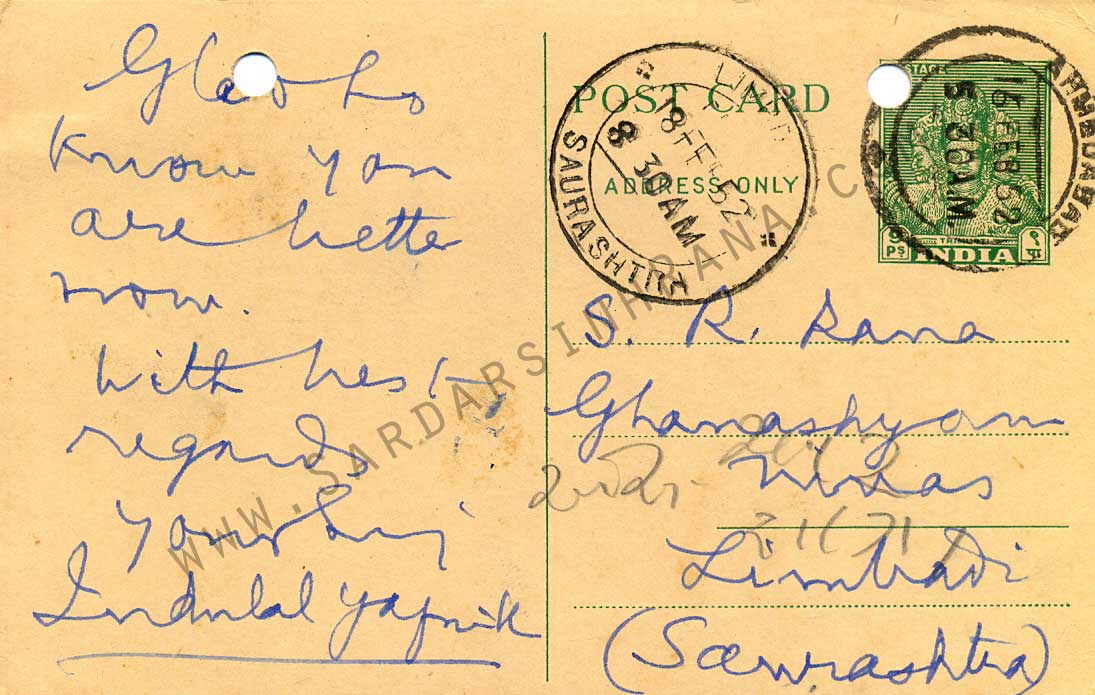 Glad to
know you
are better
now.
With best
regards
Yours sinc
Indulal Yajnik
POST CARD
ADDRESS ONLY
LIMBDI
18 FEB 52
8 30AM
SAURASHTRA
AHMADABAD
16 FEB 52
5 30AM
POSTAGE
9 PS
TRIMURTI
INDIA
९ पै
S. R. Rana
Ghanashyam
Nivas
Limbadi
(Saurashtra)
WWW.SARDARSINHRANA.C